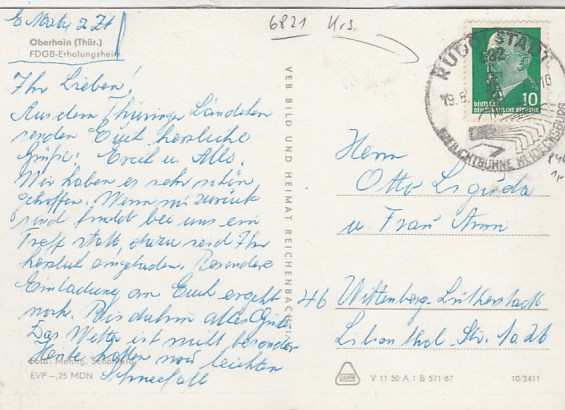 Oberhain (Thür.)
FDGB-Erholungsheim
Ihr Lieben!
Aus dem Thüringer Ländchen
senden Euch herzliche
Grüße! Erich u. Allo.
Wir haben es sehr schön
getroffen. Wenn wir zurück
sind findet bei uns ein
Treff statt, dazu seid Ihr
herzlich eingeladen. Besondere
Einladung an Euch ergeht
noch. Bis dahin alles Gute
Das Wetter ist nicht besonders
Heute hatten wir leichten
Schneefall
EVP -,25 MDN
VEB BILD UND HEIMAT REICHENBACH i. V.
6821 Krs.
RUDOLSTADT
19.5
10
DEUTSCHE
DEMOKRATISCHE REPUBLIK
FREILICHTBÜHNE HEIDECKSBURG
Herrn
Otto
u Frau Anni
46 Wittenberg-Lutherstadt
Str. 10 26
V 11 50 A I B 571/67
10/3411